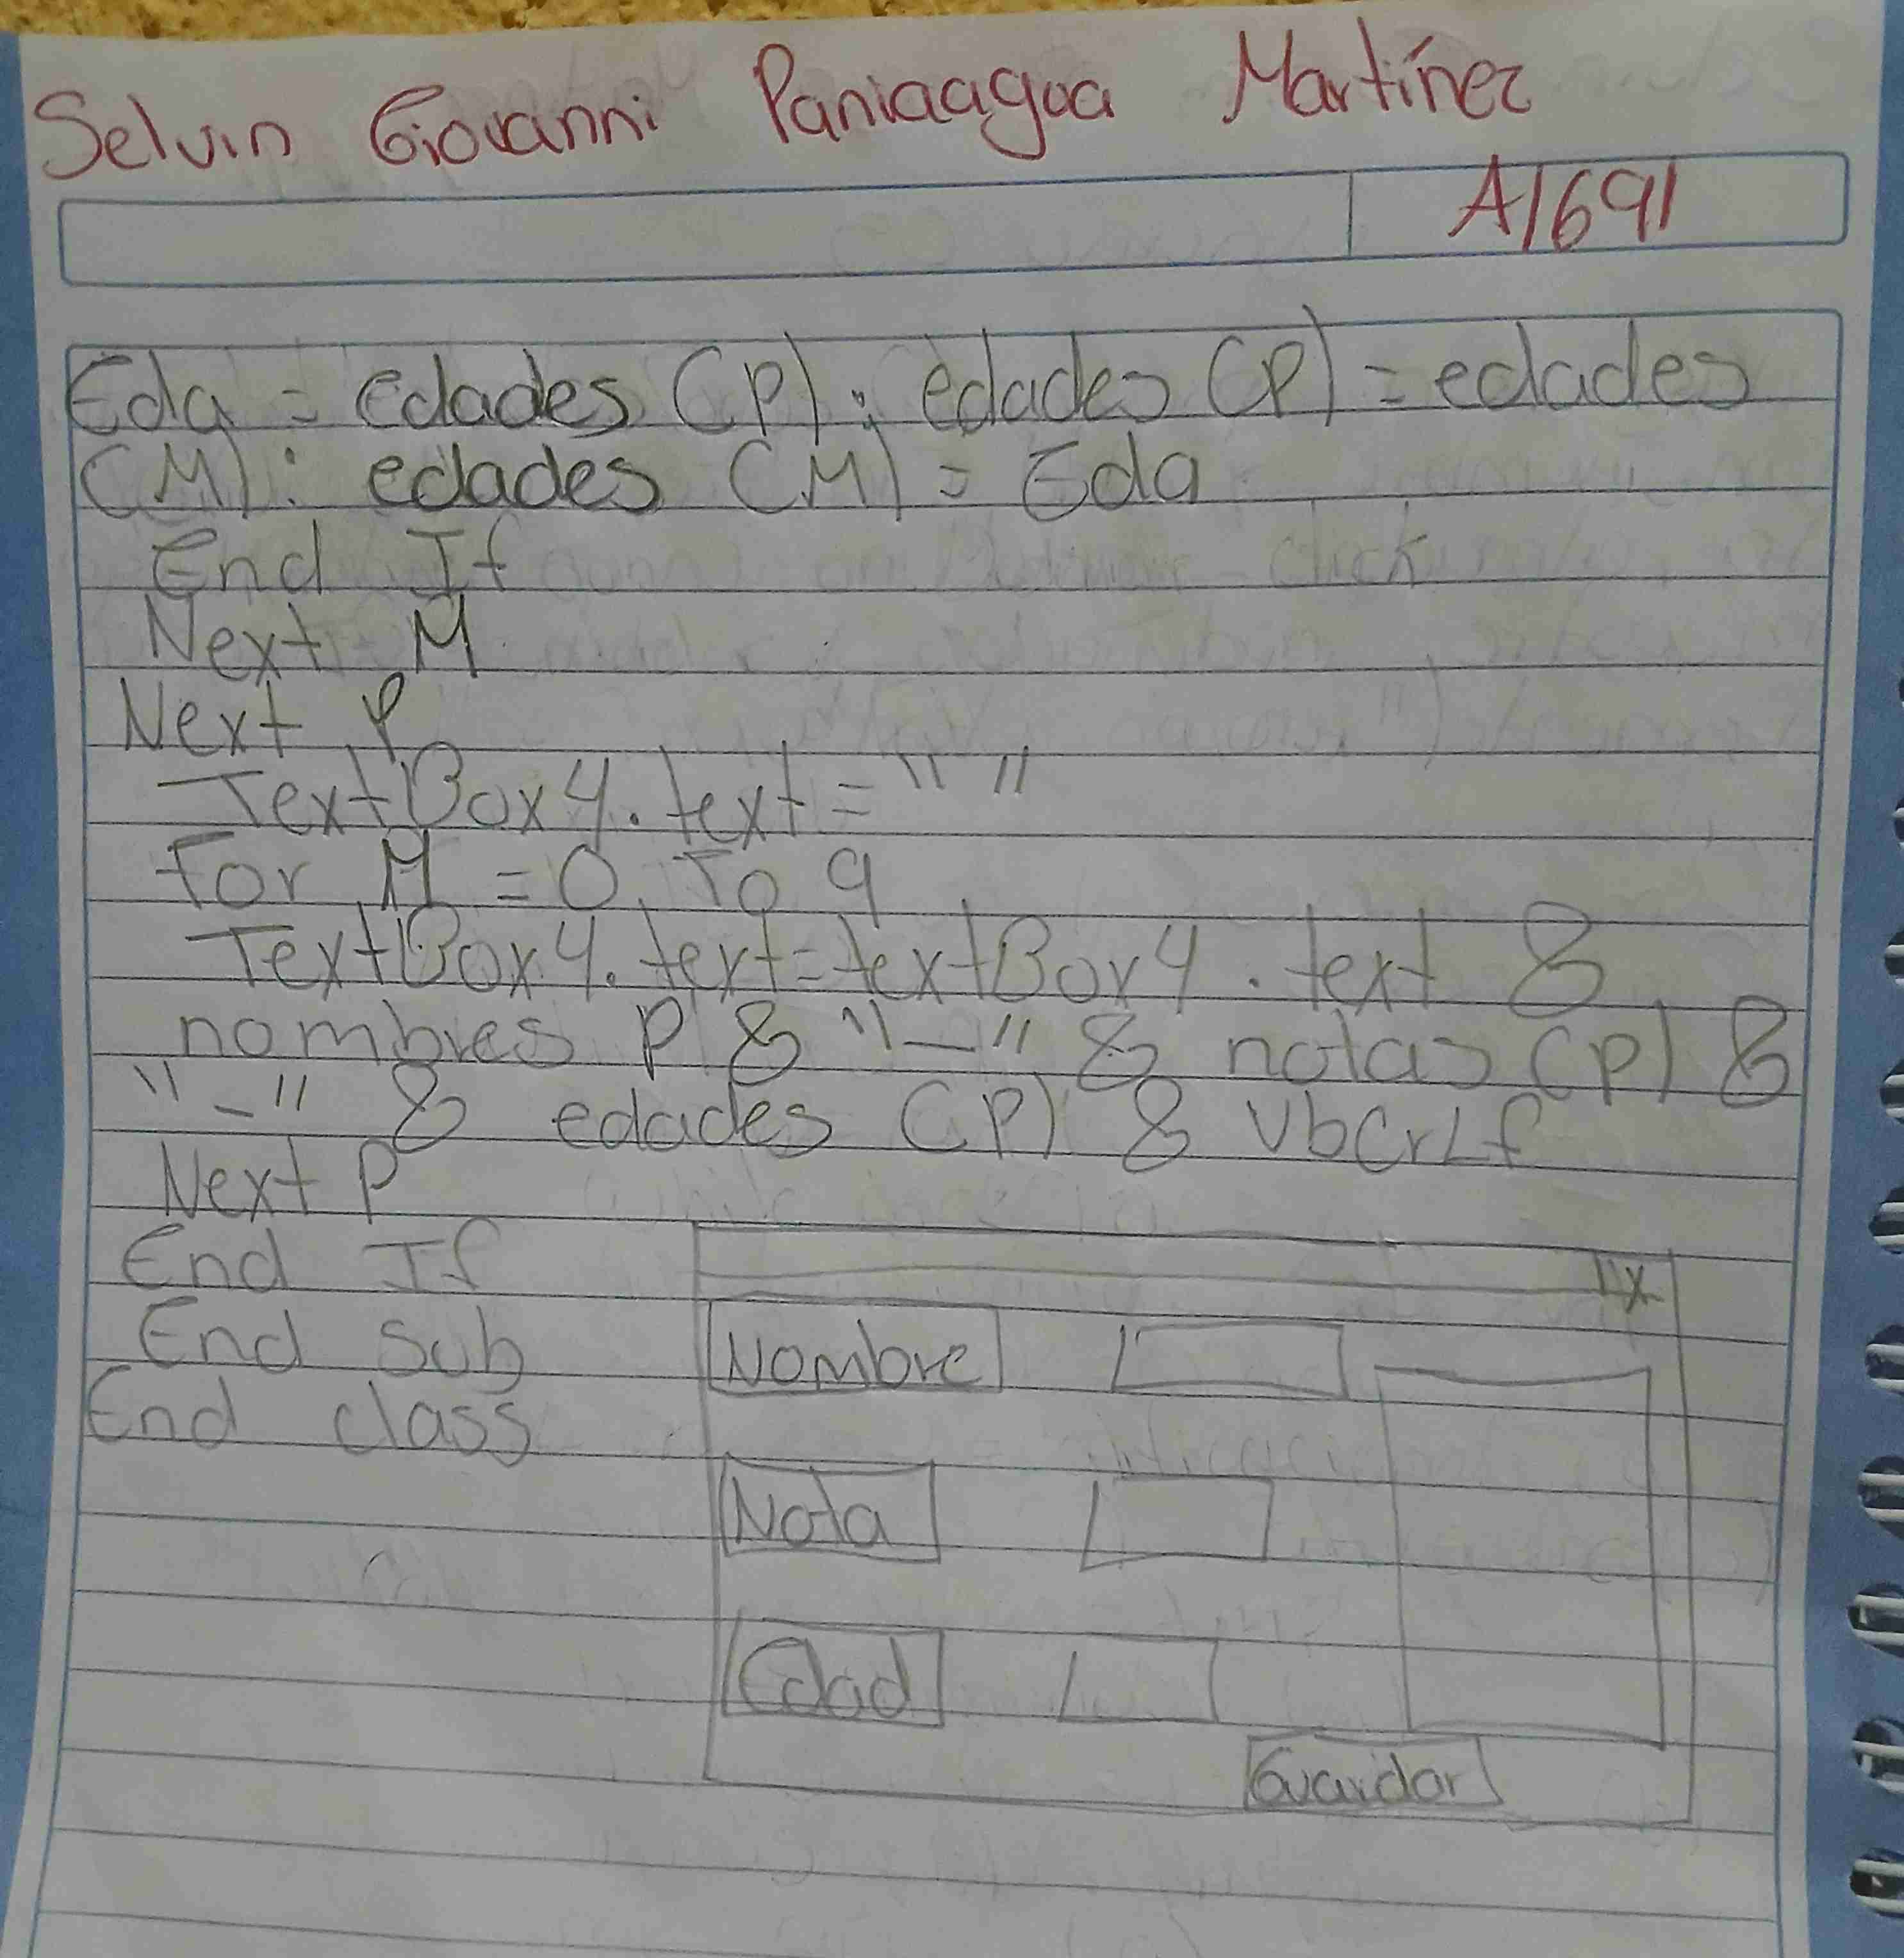 Selvin Giovanni Paniaagua Martínez
A1691
Eda = edades (P) : edades (P) = edades
(M) : edades (M) = Eda
End If
Next M
Next P
TextBox4.text = " "
For M = 0 To 9
TextBox4.text = textBox4.text &
nombres P & "-" & notas (P) &
"-" & edades (P) & VbCrLf
Next P
End If
End Sub
End class
X
Nombre
Nota
Edad
Guardar